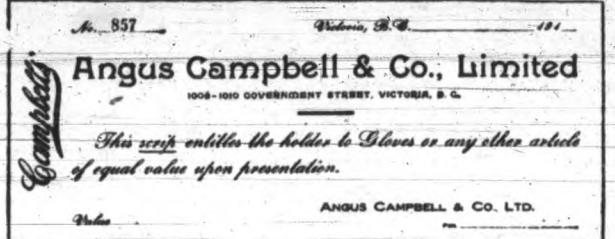 No. 857 Victoria, B.C. 191
Campbell's
Angus Campbell & Co., Limited
1008-1010 GOVERNMENT STREET, VICTORIA, B. C.
This scrip entitles the holder to Gloves or any other article
of equal value upon presentation.
ANGUS CAMPBELL & CO. LTD.
Value PER